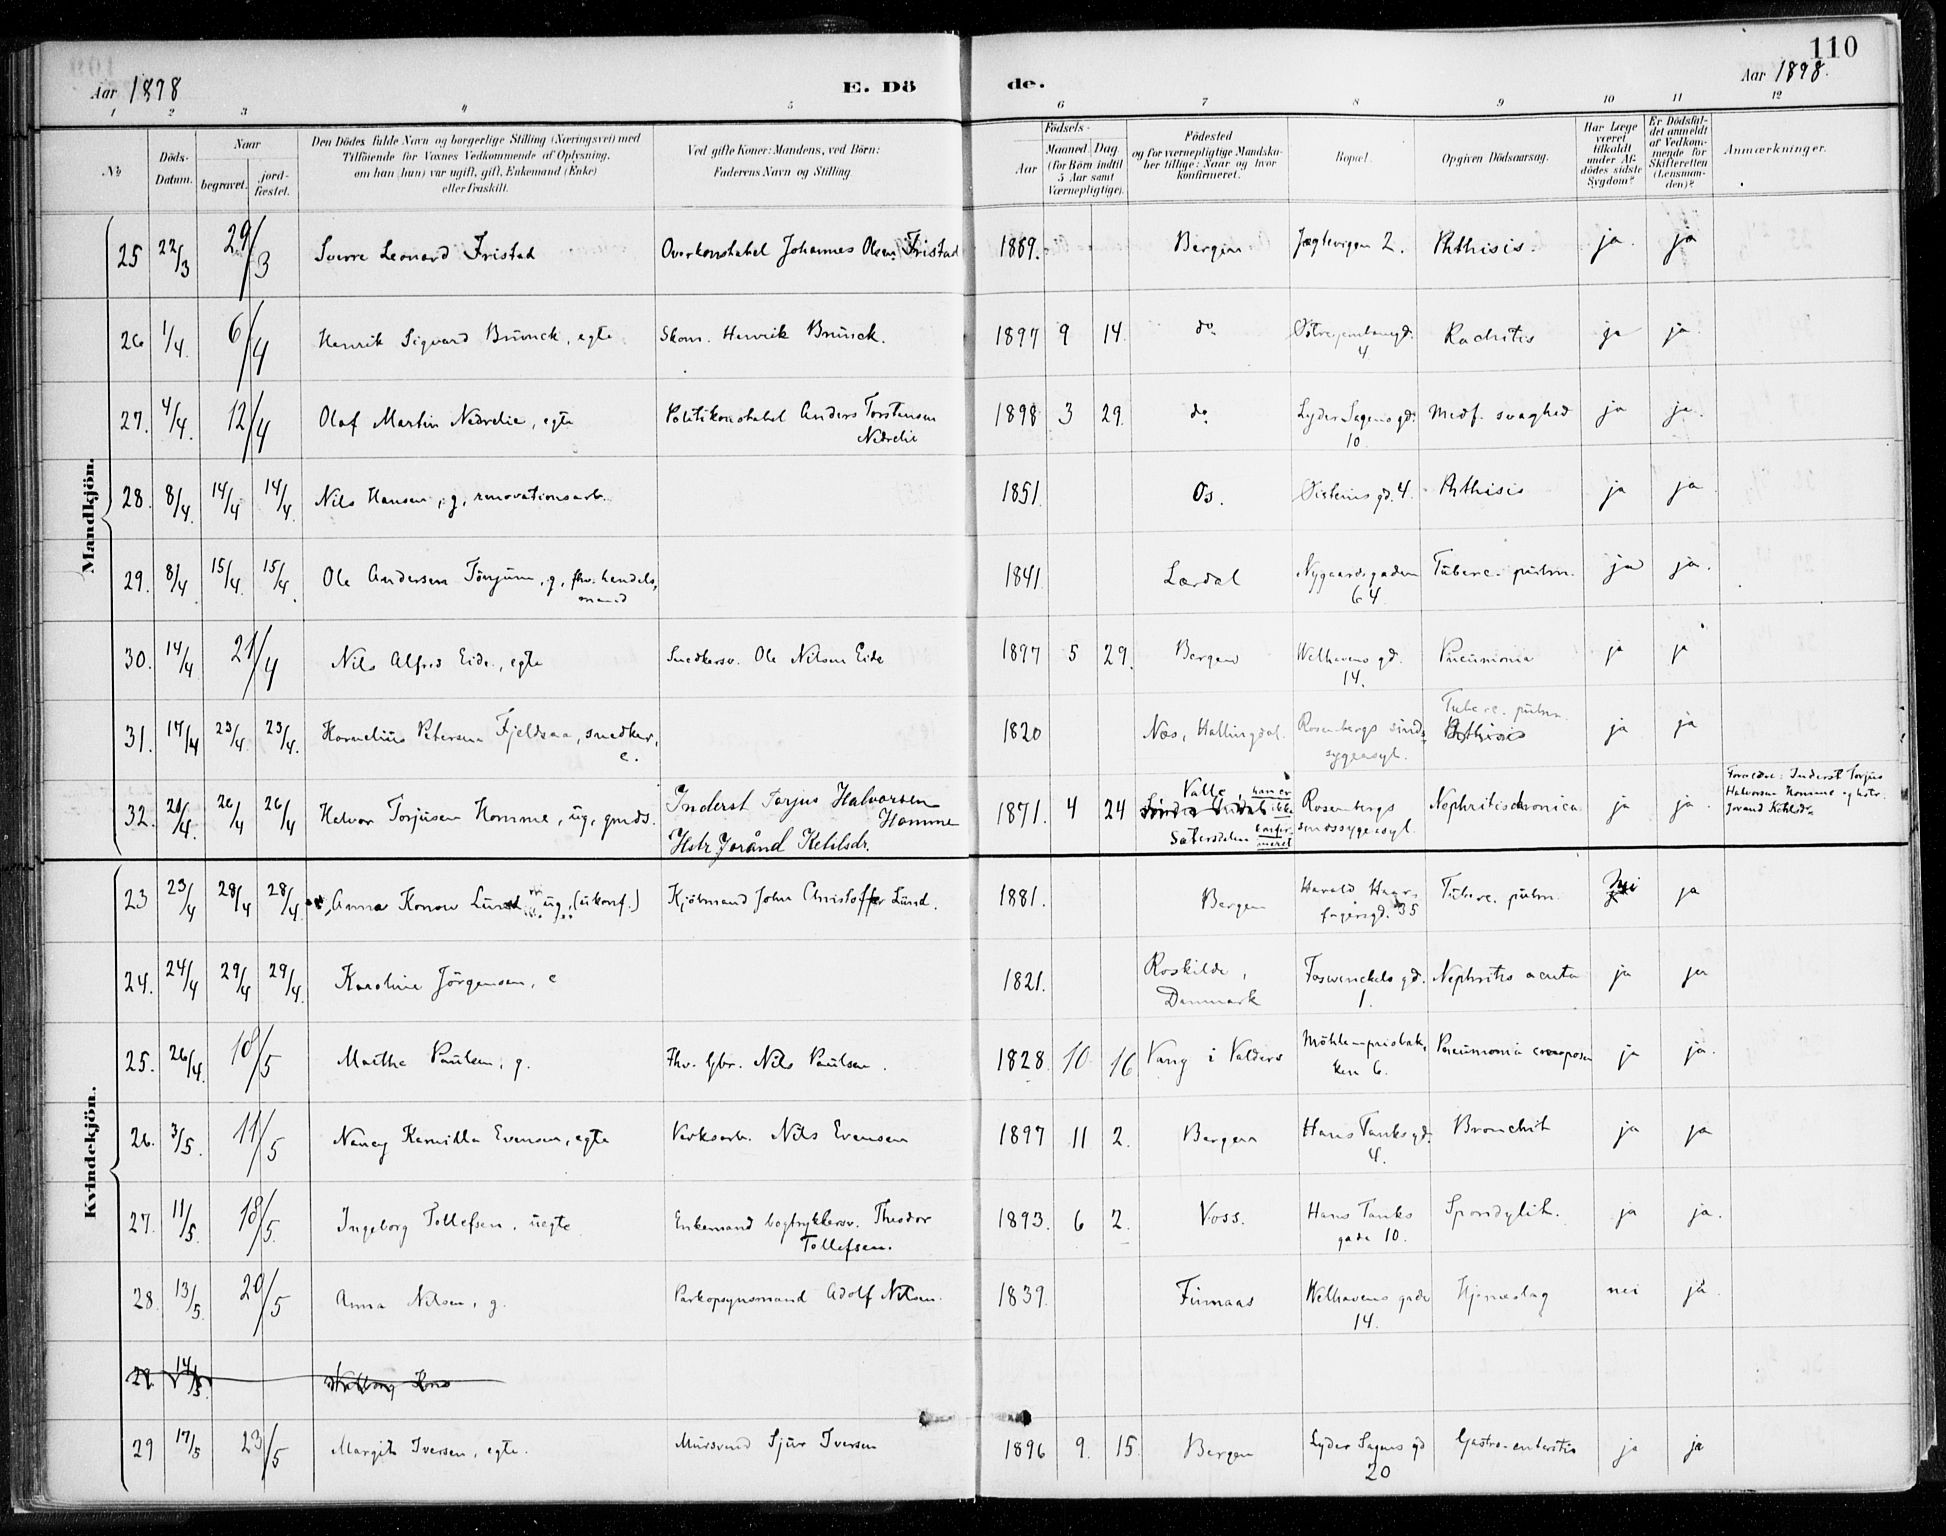 110
Aar 1898
E. Dö
de.
Aar 1898.
1 2 3 4 5 6 7 8 9 10 11 12
No
Döds-Datum.
Naar
begravet.
jord-fæstet.
Den Dödes fulde Navn og borgerlige Stilling (Næringsvei) med
Tilföiende for Voxnes Vedkommende af Oplysning,
om han (hun) var ugift, gift, Enkemand (Enke)
eller fraskilt.
Ved gifte Koner: Mandens, ved Börn:
Faderens Navn og Stilling
Födsels-
Aar
Maaned. Dag
(for Börn indtil
5 Aar samt
Værnepligtige).
Födested
og for værnepligtige Mandska-
ber tillige: Naar og hvor
konfirmeret.
Bopæl.
Opgiven Dödsaarsag.
Har Læge
været
tilkaldt
under Af-
dödes sidste
Sygdom?
Er Dödsfal-
det anmeldt
af Vedkom-
mende for
Skifteretten
(Lensman-
den)?
Anmærkninger.
Mandkjön.
25 22/3 29/3 Sverre Leonard Fristad Overkonstabel Johannes Olsen Fristad 1889. Bergen Jægtevigen 2. Phthisis. ja ja
26 1/4. 6/4 Henrik Sigvard Brunck, egte Skom. Henrik Brunck. 1897 9 14. do 4 Rachitis ja ja.
27. 4/4. 12/4 Olaf Martin Nedrelie, egte Politikonstabel Anders Torstensen Nedrelie 1898 3 29. do Lyder Sagens gd. 10. Medf. svaghed ja ja.
28 8/4. 14/4 14/4 Nils Hansen, g, renovationsarb. 1851. Os. gd. 4. Phthisis ja ja
29. 8/4 15/4. 15/4. Ole Andersen Tönjum, g, fhv. handelsmand 1841. Lærdal Nygaardsgaden 64 Tuberc. pulm. ja ja.
30. 14/4 21/4 Nils Alfred Eide, egte Snedkersv. Ole Nilsen Eide 1897 5 29. Bergen Welhavens gd. 14. Pneumonia ja ja
31. 17/4 23/4. 23/4. Kornelius Petersen Fjeldsaa, snedker, e. 1820 Næs, Hallingdal. Rosenbergs sindssygeasyl. Tuberc. pulm. Phthisis ja ja
32. 20/4. 26/4 26/4 Halvor Torjusen Homme, ug, gmds. Inderst Torjus Halvorsen Homme Hstr Jorånd Ketilsdr. 1871. 4 24 Valle, Sætersdalen han er ikke konfirmeret Rosenbergs sindssygeasyl. Nephritis chronica ja ja. Forældre: Inderst Torjus Halvorsen Homme og hstr. Jorand Ketilsdr.
Kvindekjön.
23 23/4 28/4 28/4. Anna Konow Lund ug, (ukonf.) Kjöbmand John Christoffer Lund. 1881. Bergen Harald Haarfagersgd. 35 Tuberc. pulm. Nei ja
24. 24/4 29/4 29/4. Karoline Jörgensen, e 1821. Roskilde, Danmark Foswinckels gd. 1. Nephritis acuta ja ja
25. 26/4. 18/5 Marthe Paulsen, g. Fhv. Gbr. Nils Paulsen. 1828. 10. 16 Vang i Valders Möhlenprisbakken 6. Pneumonia ja ja.
26. 3/5. 11/5 Nancy Kamilla Evensen, egte Verksarb. Nils Evensen 1897 11 2. Bergen Hans Tanksgd. 4. Bronchit ja ja
27. 11/5. 18/5. Ingeborg Tollefsen, uegte Enkemand bogtrykkersv. Theodor Tollefsen. 1893. 6 2. Voss. Hans Tanks gade 10. Spondylit. ja ja.
28. 13/5. 20/5 Anna Nilsen, g. Parkopsynsmand Adolf Nilsen. 1839. Finnaas Welhavens gade 14. Hjerneslag nei ja
29. 14/5.
29 17/5 23/5 Margit Iversen, egte. Mursvend Sjur Iversen 1896 9. 15. Bergen Lyder Sagens gd 20 Gastro-enteritis ja ja